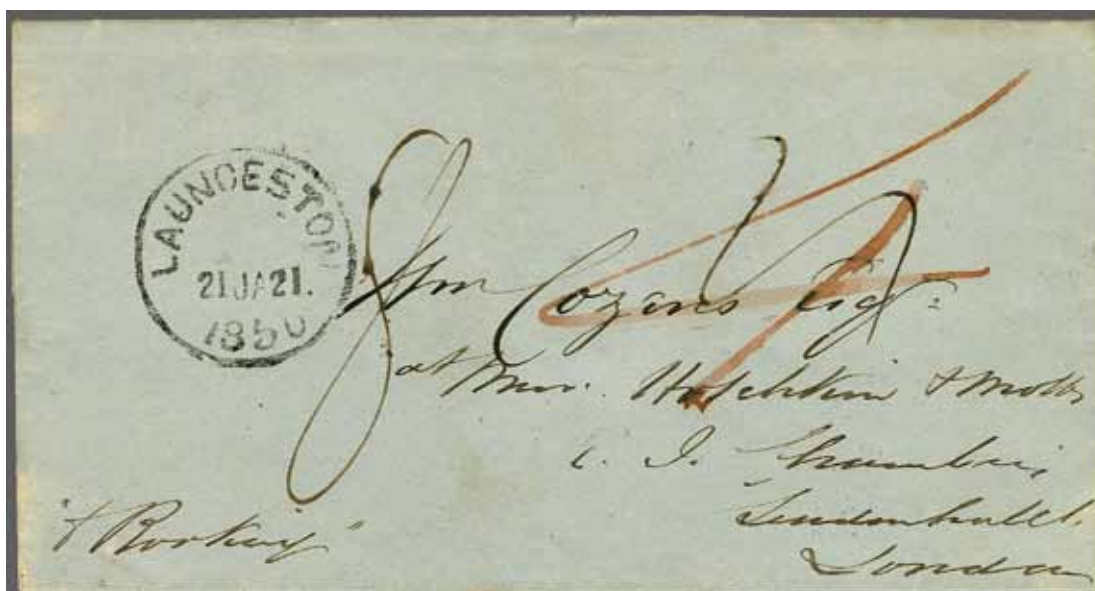 LAUNCESTON
21 JA 21.
1850
Wm Cozens Esqr
at Messrs. Hotchkin & Mobbs
E. I. Chambers
Leadenhall St.
London